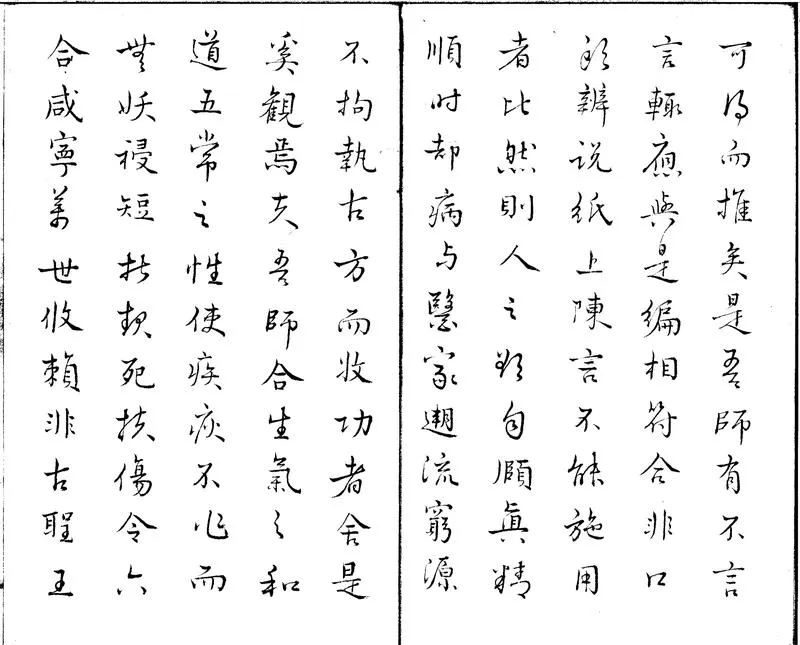 可得而推矣是吾師有不言
言輙應與是編相符合非口
辨说紙上陳言不能施用
者比然則人之欲自頤眞精
順时却病与醫家遡流窮源
不拘執古方而收功者舍是
奚觀焉夫吾師合生氣之和
道五常之性使疾疢不作而
無妖祲短折救死扶傷令六
合咸寧萬世攸賴非古聖王